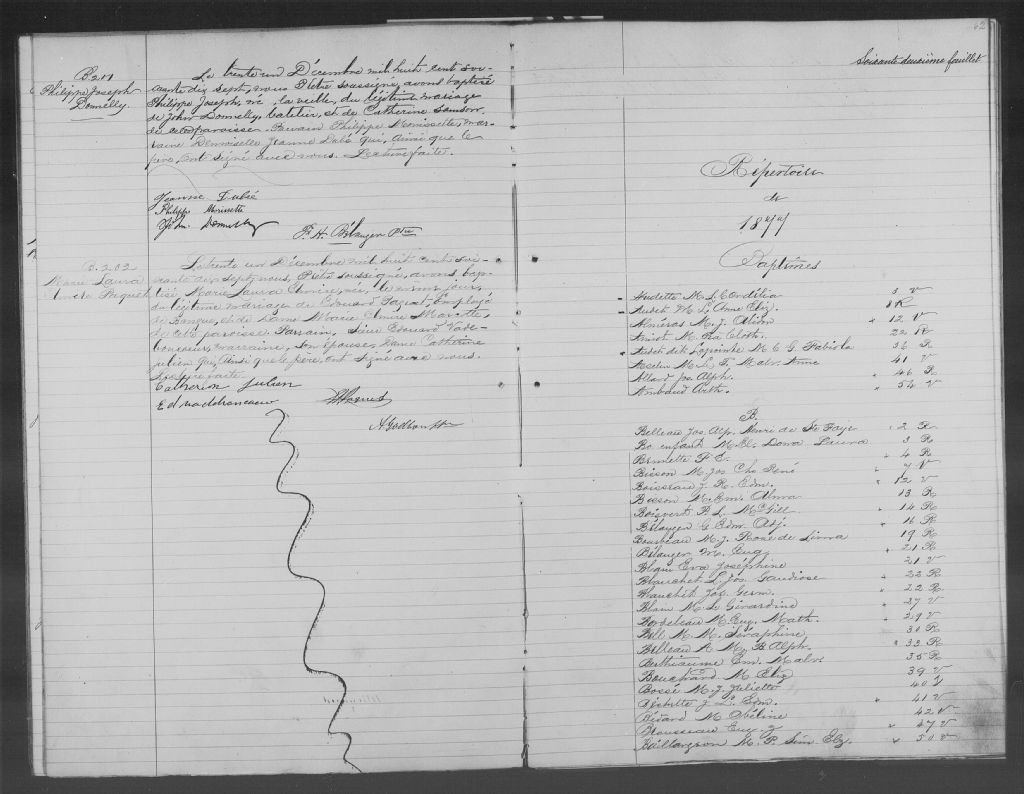 B. 201
Philippe Joseph
Donnelly.
Le trente un Décembre mil huit cent soi-
xante dix sept, nous Prêtre soussigné, avons baptisé
Philippe Joseph, né la veille, du légitime mariage
de John Donnelly, batelier, et de Catherine Samson
de cette paroisse. Parrain Philippe Morissette, mar-
raine Demoiselle Jeanne Dubé qui, ainsi que le
père, ont signé avec nous. Lecture faite.
Jeanne Dubé
Philippe Morissette
John Donnelly
F. H. Bélanger Ptre
B. 202
Marie Laura
Elmire Paquet
Le trente un Décembre mil huit cent soi-
xante dix sept, nous, Prêtre soussigné, avons bap-
tisé Marie Laura Elmire, née, le même jour,
du légitime mariage de Edouard Paquet, Employé
de Banque, et de Dame Marie Elmire Marotte,
de cette paroisse. Parrain, Sieur Edouard Vade-
boncoeur, marraine, son épouse, Dame Catherine
Julien qui, ainsi que le père, ont signé avec nous.
Lecture faite
Catherine Julien
Ed Vadeboncoeur
Paquet
A Godbout Ptre
62
Soixante deuxième feuillet
Répertoire
de
1877
Baptêmes
Audette M. L. Cordilia 3 V
Audet M. L. Anne Eliz. 8 R
Alméras M. J. 12 V
Amiot M. 22 R
Audet dit Lapointe M. C. G. Fabiola 36 R
Asselin M. L. F. Malv. Anne 41 V
Allard Jos. Alph. 46 R
Armbaud Arth. 54 V
B.
Belleau Jos. Alp. Henri de Ste Foye 2 R
Bonenfant M. El. Dora Laura 3 R
Brunette F. E. 4 R
Bisson M. Jos Chs René 7 V
Boisseau J. R. Edm. 12 V
Bisson M. Em. Alma 13 R
Boisvert B. L. McGill 14 R
Bélanger G. Edm. Adj. 16 R
Brousseau M. J. Rose de Lima 19 R
Bélanger M. Eug. 21 R
Blouin Eva Joséphine 21 V
Blanchet L. Jos. Gaudiose 22 R
Blanchet Jos. Germ. 22 R
Blais M. L. Gérardine 27 V
Bordeleau M. Eug. Math. 29 V
Bell M. M. Séraphine 30 R
Belleau A. M. B. Alph. 33 R
Berthiaume Em. Malv. 35 R
Bouchard M. Eliz 39 V
Bossé M. J. Juliette 40 V
Blouette J. L. Edm. 41 V
Bédard M. Obéline 42 V
Brousseau Eug. J 47 V
Baillargeon M. P. Sim. Elz. 50 V